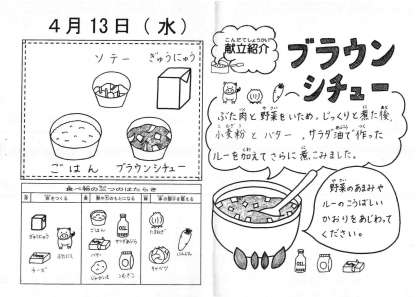 4月13日(水)
ソテー
ぎゅうにゅう
ごはん
ブラウンシチュー
食べ物の三つのはたらき
ぎゅうにゅう
ぶたにく
チーズ
ごはん
サラダあぶら
バター
じゃがいも
こむぎこ
たまねぎ
にんじん
キャベツ
こんだてしょうかい
献立紹介
ブラウン
シチュー
ぶた肉と野菜をいため、じっくりと煮た後、
小麦粉とバター、サラダ油で作った
ルーを加えてさらに煮こみました。
野菜のあまみや
ルーのこうばしい
かおりをあじわって
ください。